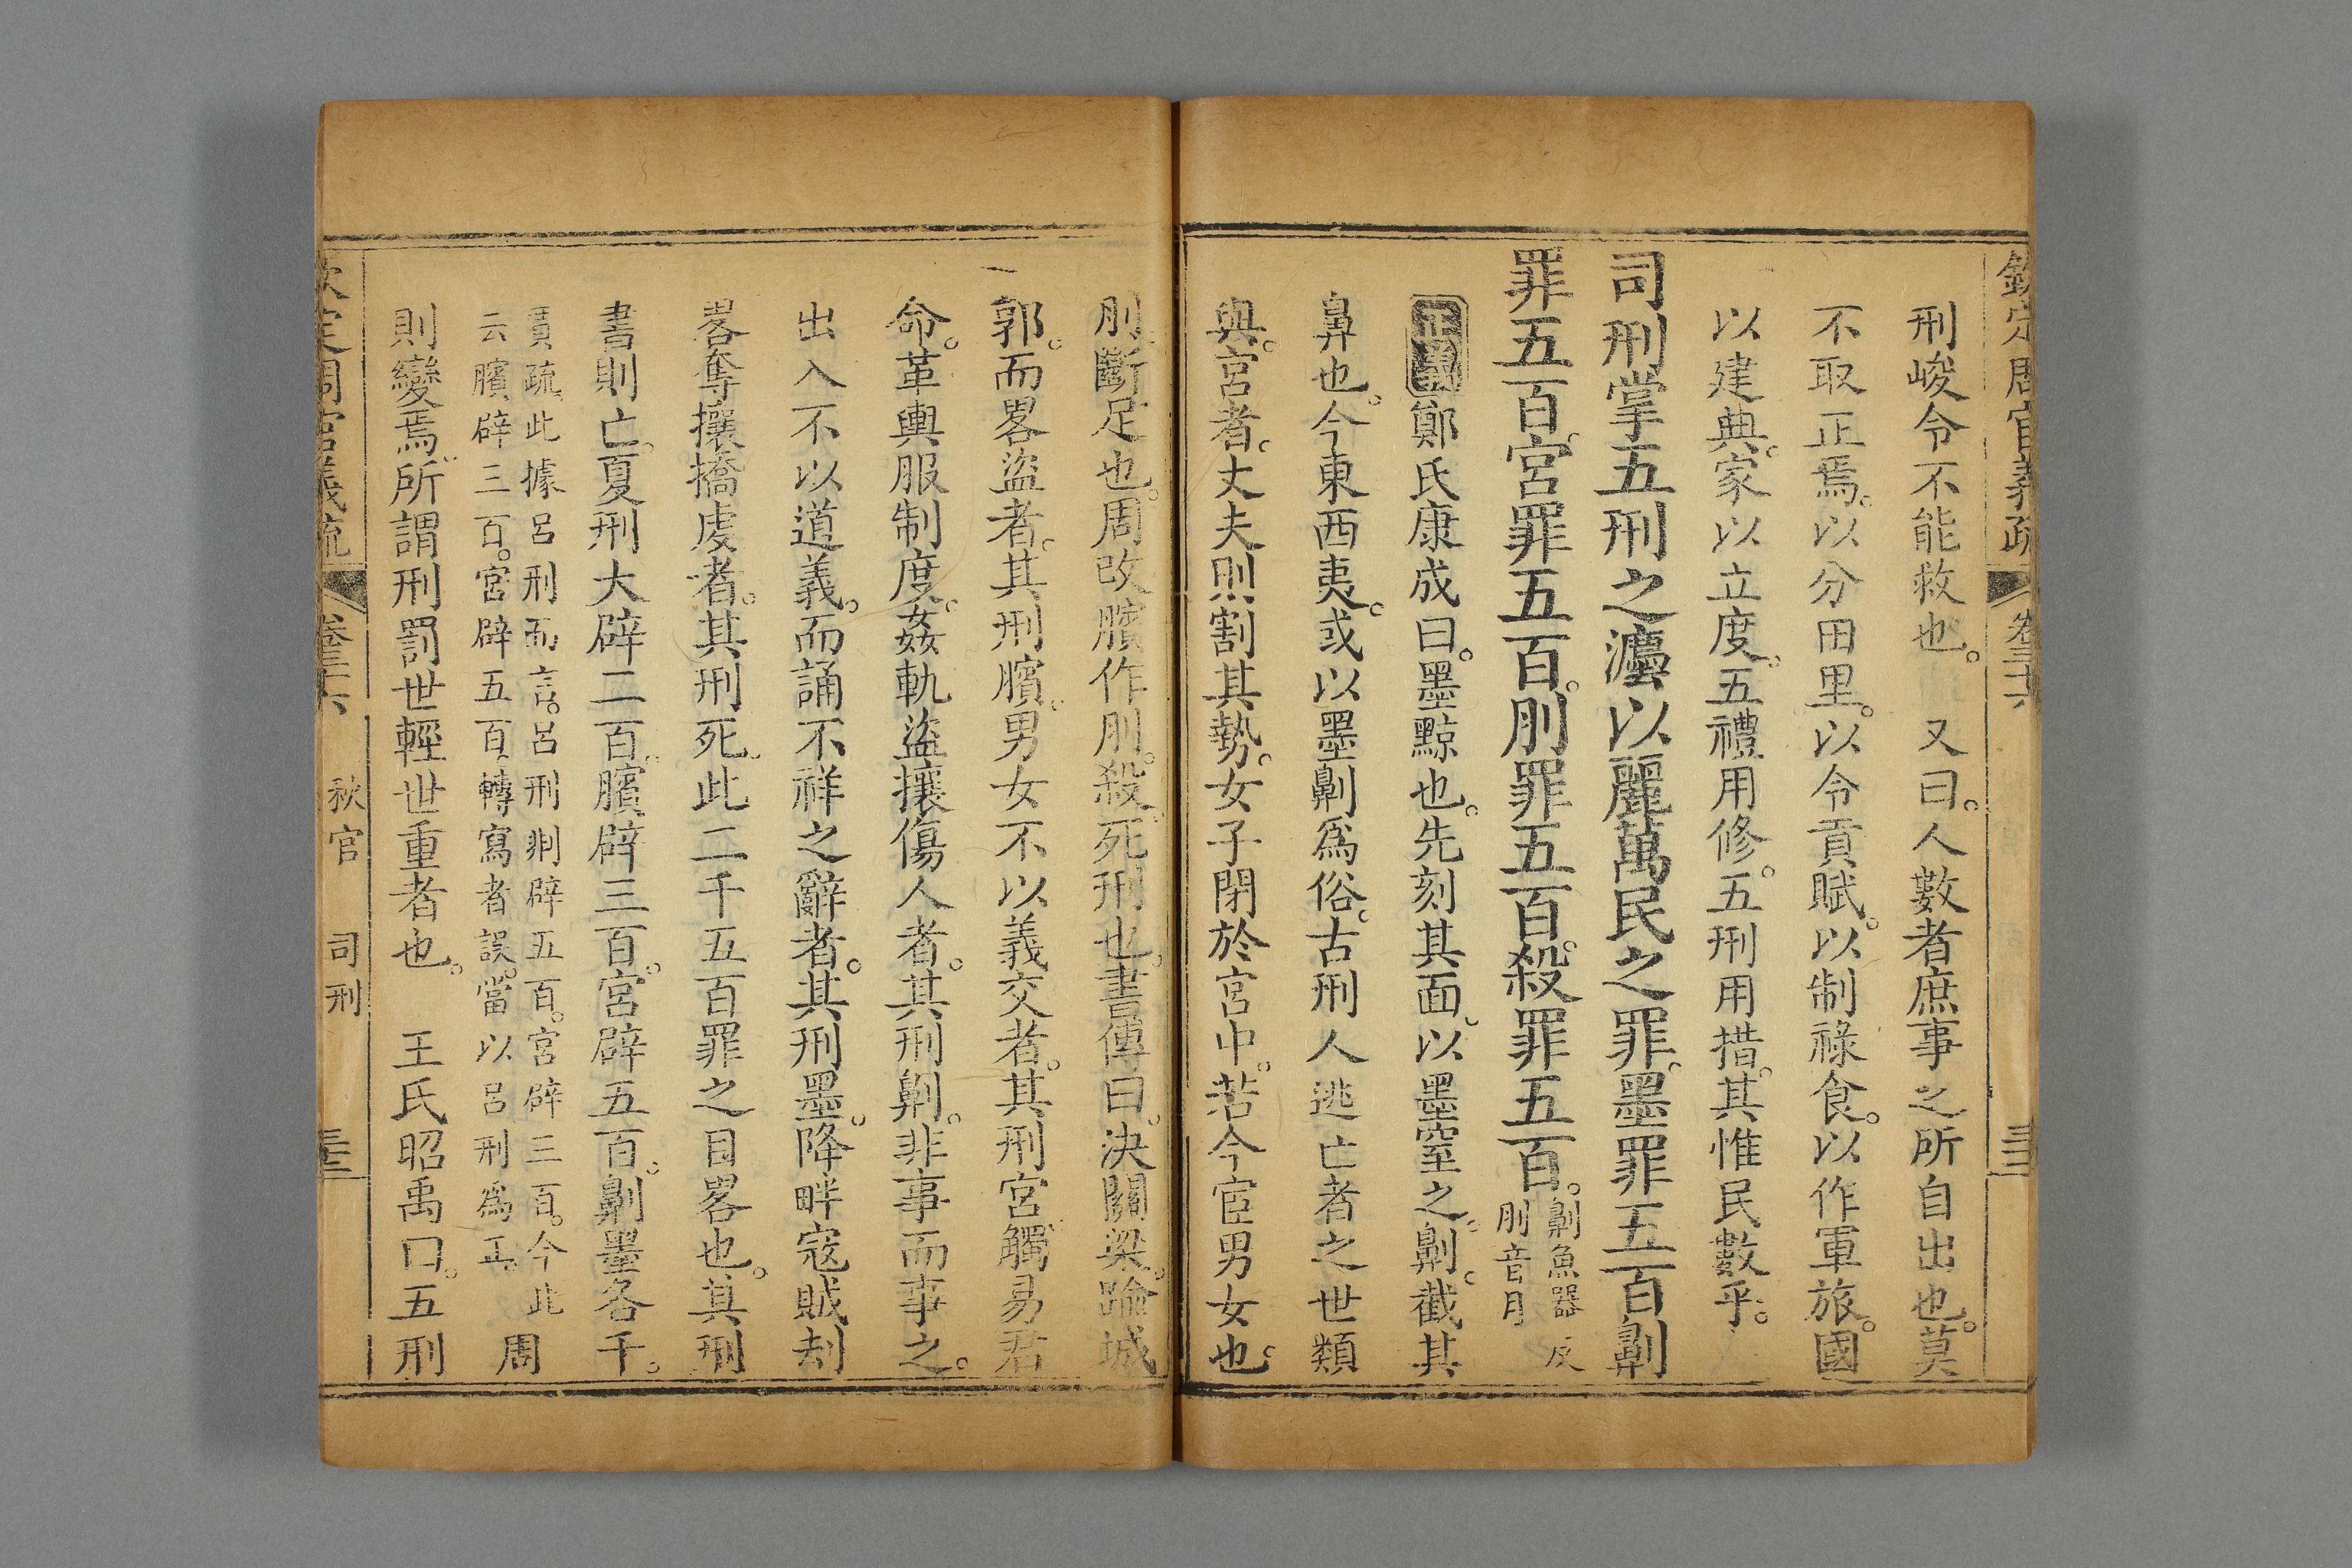 欽定周官義疏 卷三十六
刑峻令不能救也。 又曰。人數者庶事之所自出也。莫
不取正焉。以分田里。以令貢賦。以制祿食。以作軍旅。國
以建典。家以立度。五禮用修。五刑用措。其惟民數乎。
司刑掌五刑之灋以麗萬民之罪。墨罪五百劓
罪五百。宮罪五百。刖罪五百。殺罪五百。劓魚器反
刖音月
正義鄭氏康成曰。墨黥也。先刻其面。以墨窒之。劓。截其
鼻也。今東西夷。或以墨劓爲俗。古刑人逃亡者之世類
與。宮者。丈夫則割其勢。女子閉於宮中。若今宦男女也。
刖。斷足也。周改臏作刖。殺。死刑也。書傳曰。決關梁。踰城
郭。而畧盜者。其刑臏。男女不以義交者。其刑宮。觸易君
命。革輿服制度。姦軌盜攘傷人者。其刑劓。非事而事之。
出入不以道義。而誦不祥之辭者。其刑墨。降畔寇賊刦
畧奪攘撟虔者。其刑死。此二千五百罪之目畧也。其刑
書則亡。夏刑大辟二百。臏辟三百。宮辟五百。劓墨各千。
賈疏。此據呂刑而言。呂刑剕辟五百。宮辟三百。今此
云臏辟三百。宮辟五百。轉寫者誤。當以呂刑爲正。周
則變焉。所謂刑罰世輕世重者也。 王氏昭禹曰。五刑
欽定周官義疏 卷三十六 秋官 司刑